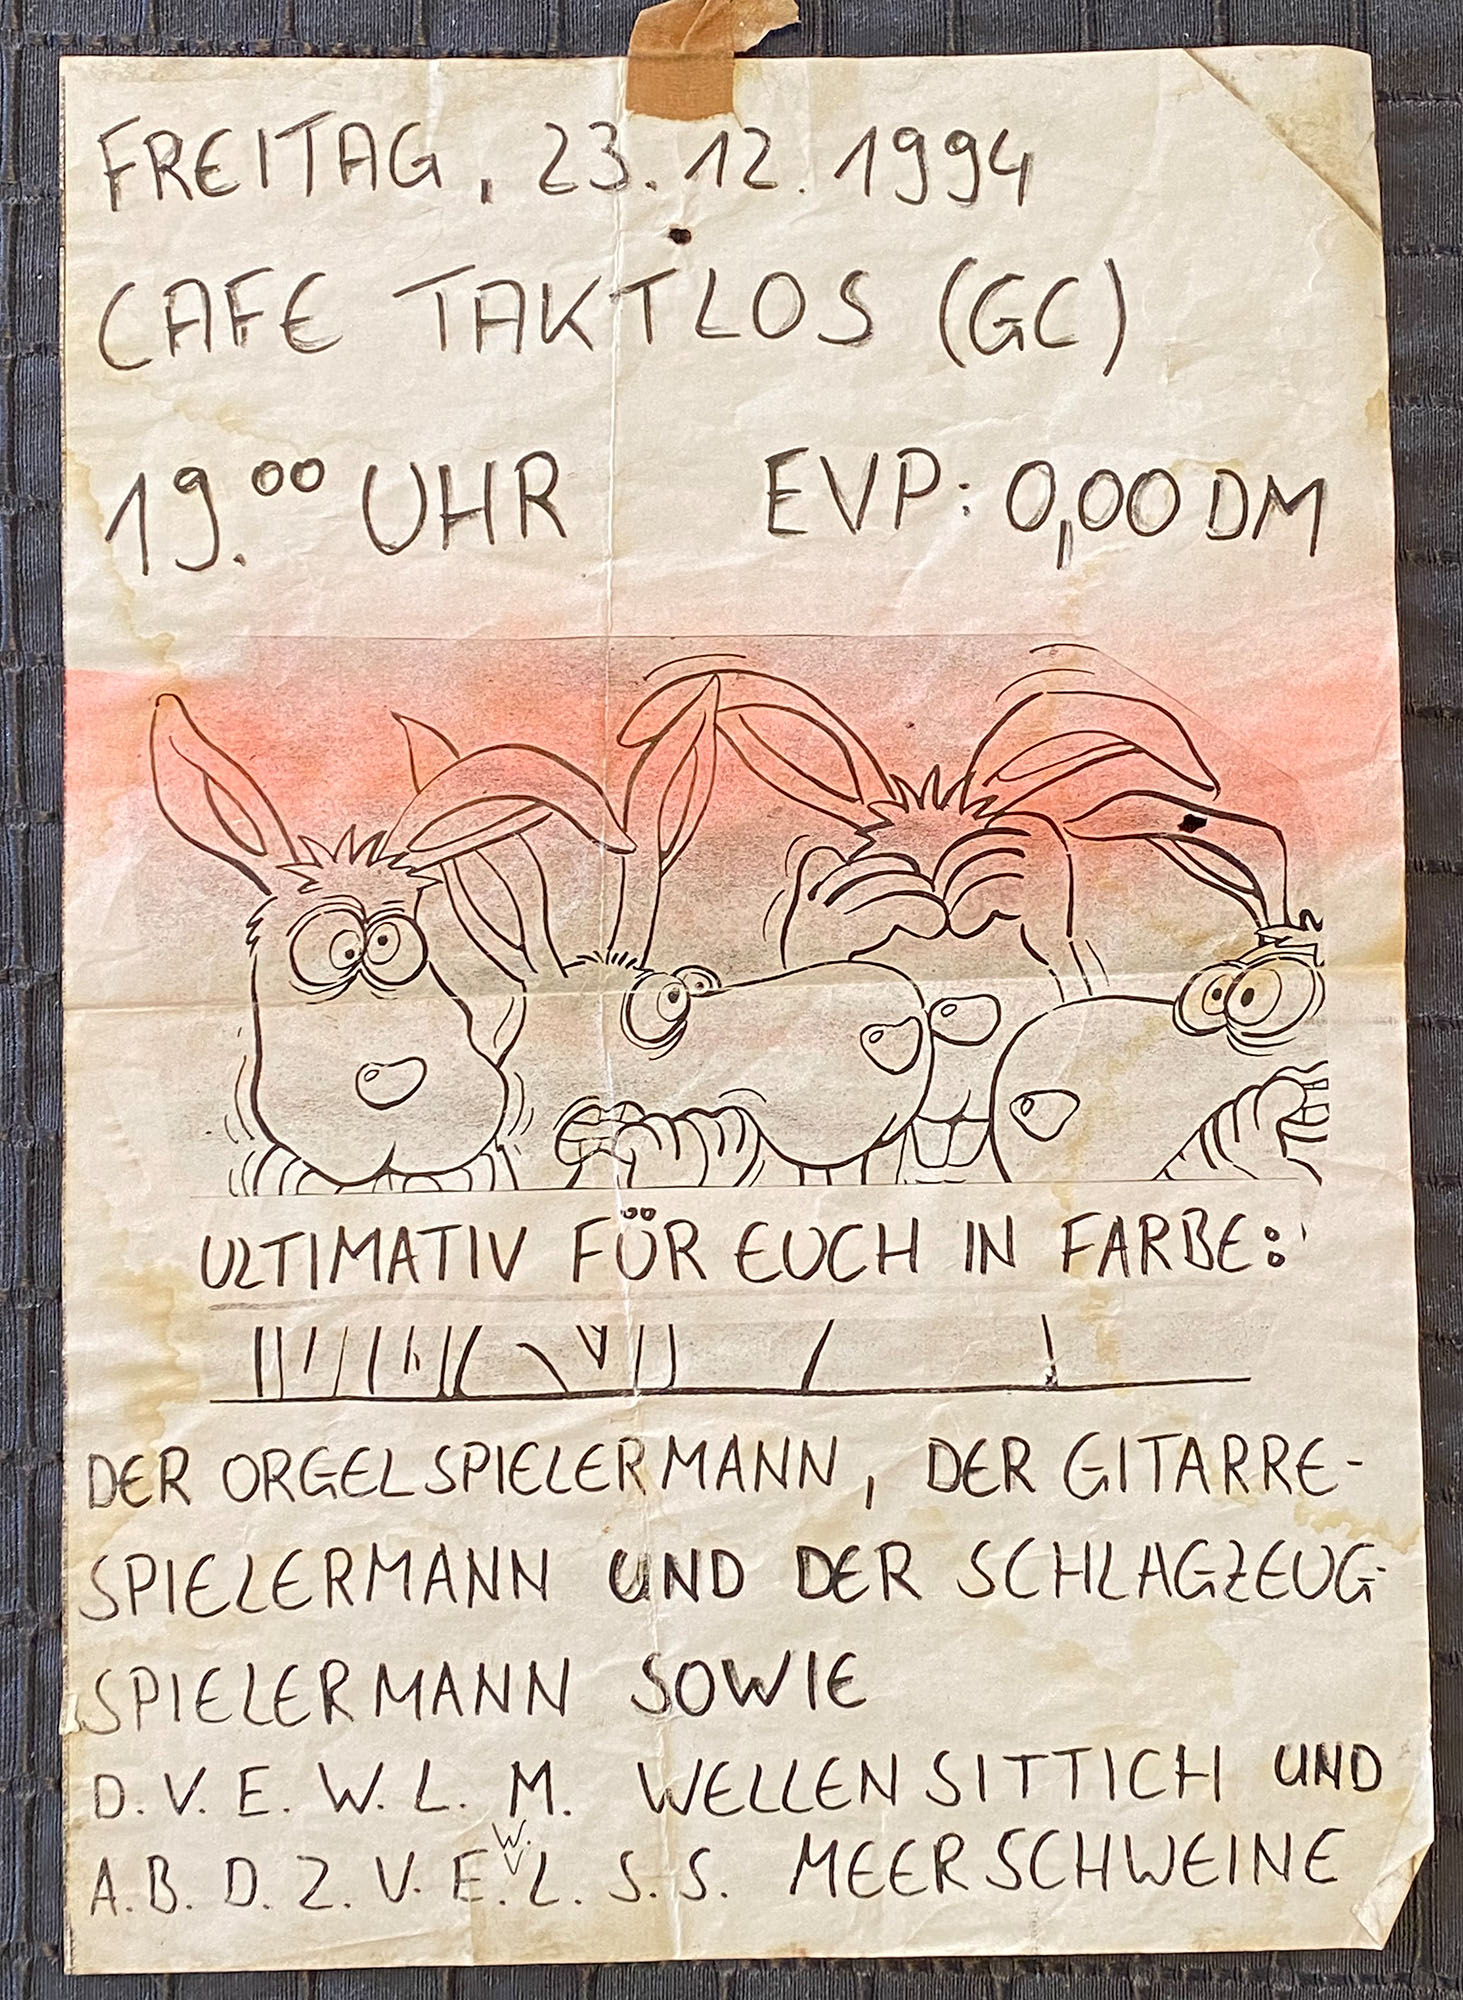 FREITAG, 23.12.1994
CAFE TAKTLOS (GC)
19.00 UHR EVP: 0,00 DM
ULTIMATIV FÜR EUCH IN FARBE:
DER ORGELSPIELERMANN, DER GITARRE-
SPIELERMANN UND DER SCHLAGZEUG-
SPIELERMANN SOWIE
D. V. E. W. L. M. WELLENSITTICH UND
A. B. D. Z. V. E. W. L. S. S. MEERSCHWEINE